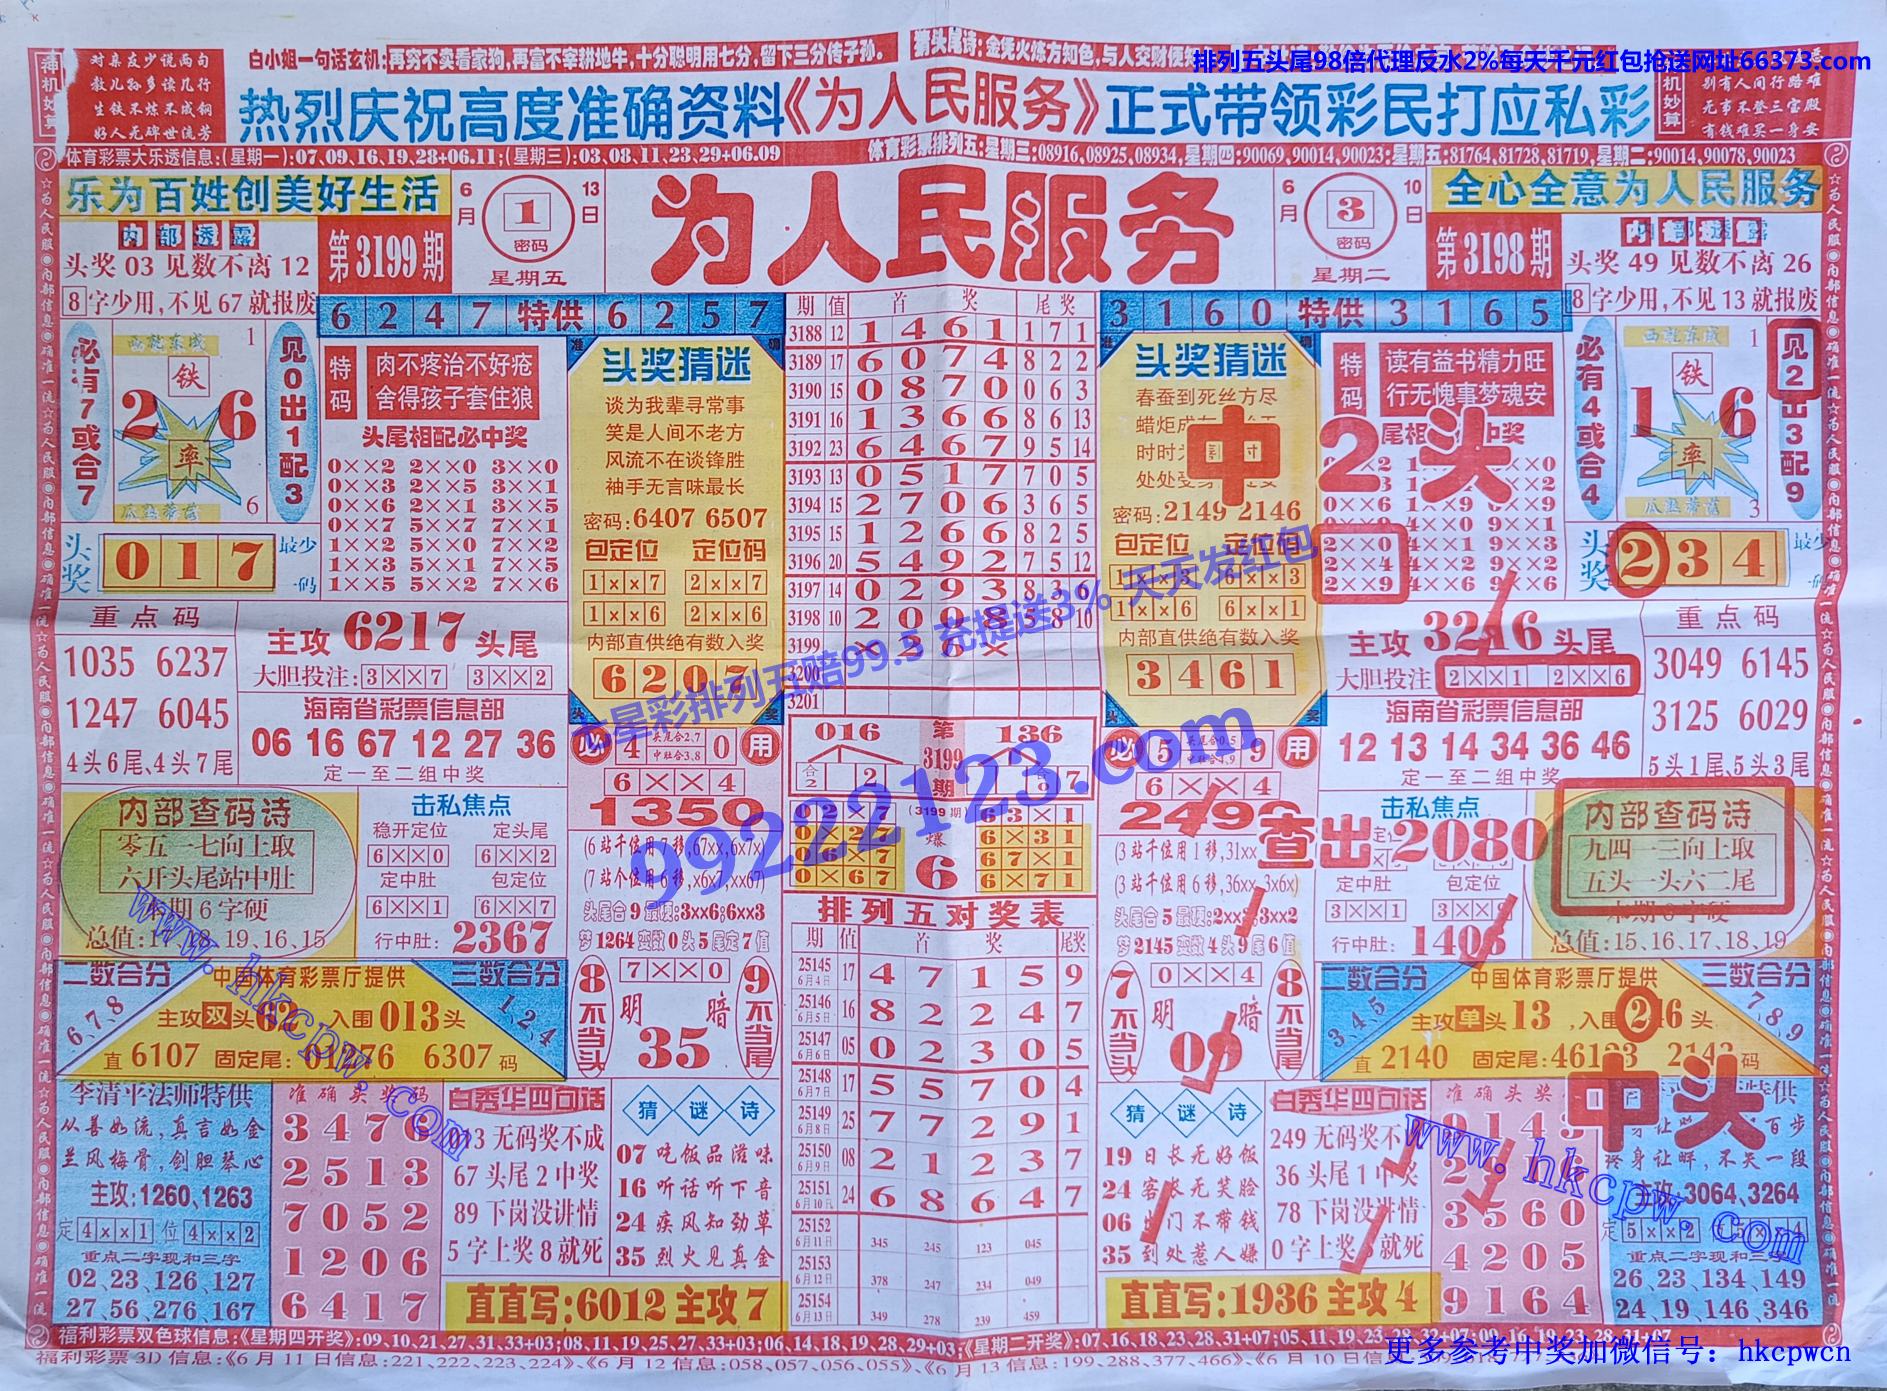 白小姐一句话玄机:再穷不卖看家狗,再富不宰耕地牛,十分聪明用七分,留下三分传子孙。
排列五头尾98倍代理反水2%每天千元红包抢送网址66373.com
对亲友少说两句
教儿孙多读几行
生铁不炼不成钢
好人无碑世流芳
热烈庆祝高度准确资料《为人民服务》正式带领彩民打应私彩
别有人间行路难
无事不登三宝殿
有钱难买一身安
体育彩票大乐透信息:(星期一):07,09,16,19,28+06.11;(星期三):03,08,11,23,29+06.09
体育彩票排列五:星期三:08916,08925,08934,星期四:90069,90014,90023;星期五:81764,81728,81719,星期二:90014,90078,90023
乐为百姓创美好生活
6月 1 13日
密码
星期五
为人民服务
6月 3 10日
密码
星期二
全心全意为人民服务
内部透露
头奖 03 见数不离 12
8字少用,不见 67 就报废
第3199期
第3198期
内部透露
头奖 49 见数不离 26
8字少用,不见 13 就报废
6 2 4 7 特供 6 2 5 7
3 1 6 0 特供 3 1 6 5
必有7或合7
西乾东成
铁
2 6
率
瓜熟蒂落
1
6
见0出1配3
头奖 0 1 7 最少一码
特码
肉不疼治不好疮
舍得孩子套住狼
头尾相配必中奖
0××2 2××0 3××0
0××3 2××5 3××1
0××6 2××1 3××5
0××7 5××7 7××1
1××2 5××0 7××2
1××3 5××1 7××5
1××5 5××2 7××6
头奖猜迷
谈为我辈寻常事
笑是人间不老方
风流不在谈锋胜
袖手无言味最长
密码:6407 6507
包定位 定位码
1××7 2××7
1××6 2××6
内部直供绝有数入奖
6 2 0 7
期 值 首 奖 尾 奖
3188 12 1 4 6 1 1 7 1
3189 17 6 0 7 4 8 2 2
3190 15 0 8 7 0 0 6 3
3191 16 1 3 6 6 8 6 13
3192 23 6 4 6 7 9 5 14
3193 13 0 5 1 7 7 0 5
3194 15 2 7 0 6 3 6 5
3195 15 1 2 6 6 8 2 5
3196 20 5 4 9 2 7 5 12
3197 14 0 2 9 3 8 3 6
3198 10 2 0 0 8 5 8 10
3199 × 3 6 ×
3200
3201
头奖猜迷
春蚕到死丝方尽
密码:2149 2146
包定位 定位码
1××3 6××3
1××6 6××1
内部直供绝有数入奖
3 4 6 1
特码
读有益书精力旺
行无愧事梦魂安
中2头
2××0
2××4 4××1 9××3
2××9 4××6 9××6
必有4或合4
西乾东成
铁
1 6
率
瓜熟蒂落
1
3
见2出3配9
头奖 2 3 4 最少一码
重点码
1035 6237
1247 6045
4头6尾、4头7尾
主攻 6217 头尾
大胆投注: 3××7 3××2
海南省彩票信息部
06 16 67 12 27 36
定一至二组中奖
必 4 0 用
6××4
1350
(6 站千位用 7 移,67xx,6x7x)
(7 站个位用 6 移,x6x7,xx67)
头尾合 9 最硬:3xx6;6xx3
梦 1264 变数 0 头 5 尾定 7 值
016 第3199期 136
(3199期)
爆
6
0 2 × 7
0 × 2 7
0 6 × 7
0 × 6 7
6 3 × 1
6 × 3 1
6 7 × 1
6 × 7 1
必 5 9 用
6××4
(3 站千位用 1 移,31xx
(3 站千位用 6 移,36xx,3x6x)
梦 2145 变数 4 头 9 尾 6 值
主攻 3216 头尾
大胆投注 2××1 2××6
海南省彩票信息部
12 13 14 34 36 46
定一至二组中奖
重点码
3049 6145
3125 6029
5头1尾、5头3尾
内部查码诗
零五一七向上取
六开头尾站中肚
本期 6 字硬
19、16、15
击私焦点
稳开定位 定头尾
6××0 6××2
定中肚 包定位
6××1 6××7
行中肚: 2367
击私焦点
查出2080
定中肚 包定位
3××1
行中肚:
内部查码诗
九四一三向上取
五头一头六二尾
本期 6 字硬
总值:15、16、17、18、19
二数合分
6、7、8
中国体育彩票厅提供
主攻双头62 入围013头
直 6107 固定尾: 6307 码
三数合分
1、2、4
8不当头
7××0
明 暗
35
9不当尾
排列五对奖表
期 值 首 奖 尾奖
25145 6月4日 17 4 7 1 5 9
25146 6月5日 16 8 2 2 4 7
25147 6月6日 05 0 2 3 0 5
25148 6月7日 17 5 5 7 0 4
25149 6月8日 25 7 7 2 9 1
25150 6月9日 08 2 1 2 3 7
25151 6月10日 24 6 8 6 4 7
25152 6月11日 345 245 123 045
25153 6月12日 378 247 234 049
25154 6月13日 349 278 239 459
7不当头
0××4
明 暗
8不当尾
二数合分
3、4、5
中国体育彩票厅提供
主攻单头13,入围246头
直 2140 固定尾: 码
三数合分
7、8、9
中头
李清平法师特供
从善如流,真言如金
兰风梅骨,剑胆琴心
主攻:1260、1263
定 4××1 位 4××2
重点二字现和三字
02、23、126、127
27、56、276、167
准确头奖码
3 4 7 6
2 5 1 3
7 0 5 2
1 2 0 6
6 4 1 7
白秀华四句话
013 无码奖不成
67 头尾 2 中奖
89 下岗没讲情
5 字上奖 8 就死
猜谜诗
07 吃饭品滋味
16 听话听下音
24 疾风知劲草
35 烈火见真金
直直写:6012 主攻 7
猜谜诗
19 日长无好饭
24 客长无笑脸
06 出门不带钱
35 到处惹人嫌
白秀华四句话
249 无码奖不成
36 头尾 1 中奖
78 下岗没讲情
直直写:1936 主攻 4
准确头奖码
9 1 4 3
3 5 6 0
4 2 0 5
9 1 6 4
终身让畔,不失一段
主攻:3064、3264
重点二字现和三字
26、23、134、149
24、19、146、346
福利彩票双色球信息:《星期四开奖》:09,10,21,27,31,33+03;08,11,19,25,27,33+03;06,14,18,19,28,29+03;《星期二开奖》:07,16,18,23,28,31+07;05,11,19,23,28,32+07;
福利彩票3D信息:《6月11日信息:221,222,223,224》、《6月12信息:058,057,056,055》、《6月13信息:199,288,377,466》、《6月10日信息
更多参考中奖加微信号：hkcpwcn
七星彩排列五赔99.5 充提送3% 天天发红包
99222123.com
www.hkcpw.com
www.hkcpw.com